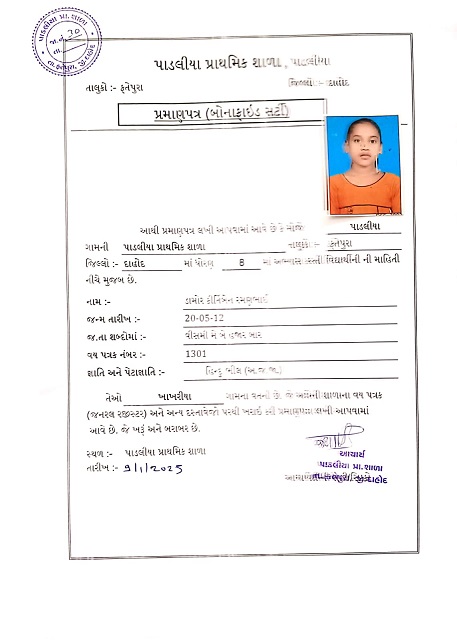 પાડલીયા પ્રા. શાળા
તા. ફતેપુરા, જી. દાહોદ
પાડલીયા પ્રાથમિક શાળા, પાડલીયા
તાલુકો :- ફતેપુરા જિલ્લો :- દાહોદ
પ્રમાણપત્ર (બોનાફાઇડ સર્ટી)
આથી પ્રમાણપત્ર લખી આપવામાં આવે છે કે મોજે પાડલીયા
ગામની પાડલીયા પ્રાથમિક શાળા તાલુકા :- ફતેપુરા
જિલ્લો :- દાહોદ માં ધોરણ 8 માં અભ્યાસ કરતી વિદ્યાર્થીની ની માહિતી
નીચે મુજબ છે.
નામ :- ડામોર રમણભાઈ
જન્મ તારીખ :- 20-05-12
જ.તા શબ્દોમાં :- વીસમી મે બે હજાર બાર
વય પત્રક નંબર :- 1301
જ્ઞાતિ અને પેટાજ્ઞાતિ:- હિન્દુ ભીલ (અ.જ.જા.)
તેઓ ભાખરીયા ગામના વતની છે. જે અત્રેની શાળાના વય પત્રક
(જનરલ રજીસ્ટર) અને અન્ય દસ્તાવેજો પરથી ખરાઈ કરી પ્રમાણપત્ર લખી આપવામાં
આવે છે. જે ખરૂં અને બરાબર છે.
સ્થળ :- પાડલીયા પ્રાથમિક શાળા
તારીખ :- 9/1/2025
આચાર્ય
પાડલીયા પ્રા. શાળા
તા. ફતેપુરા, જી. દાહોદ